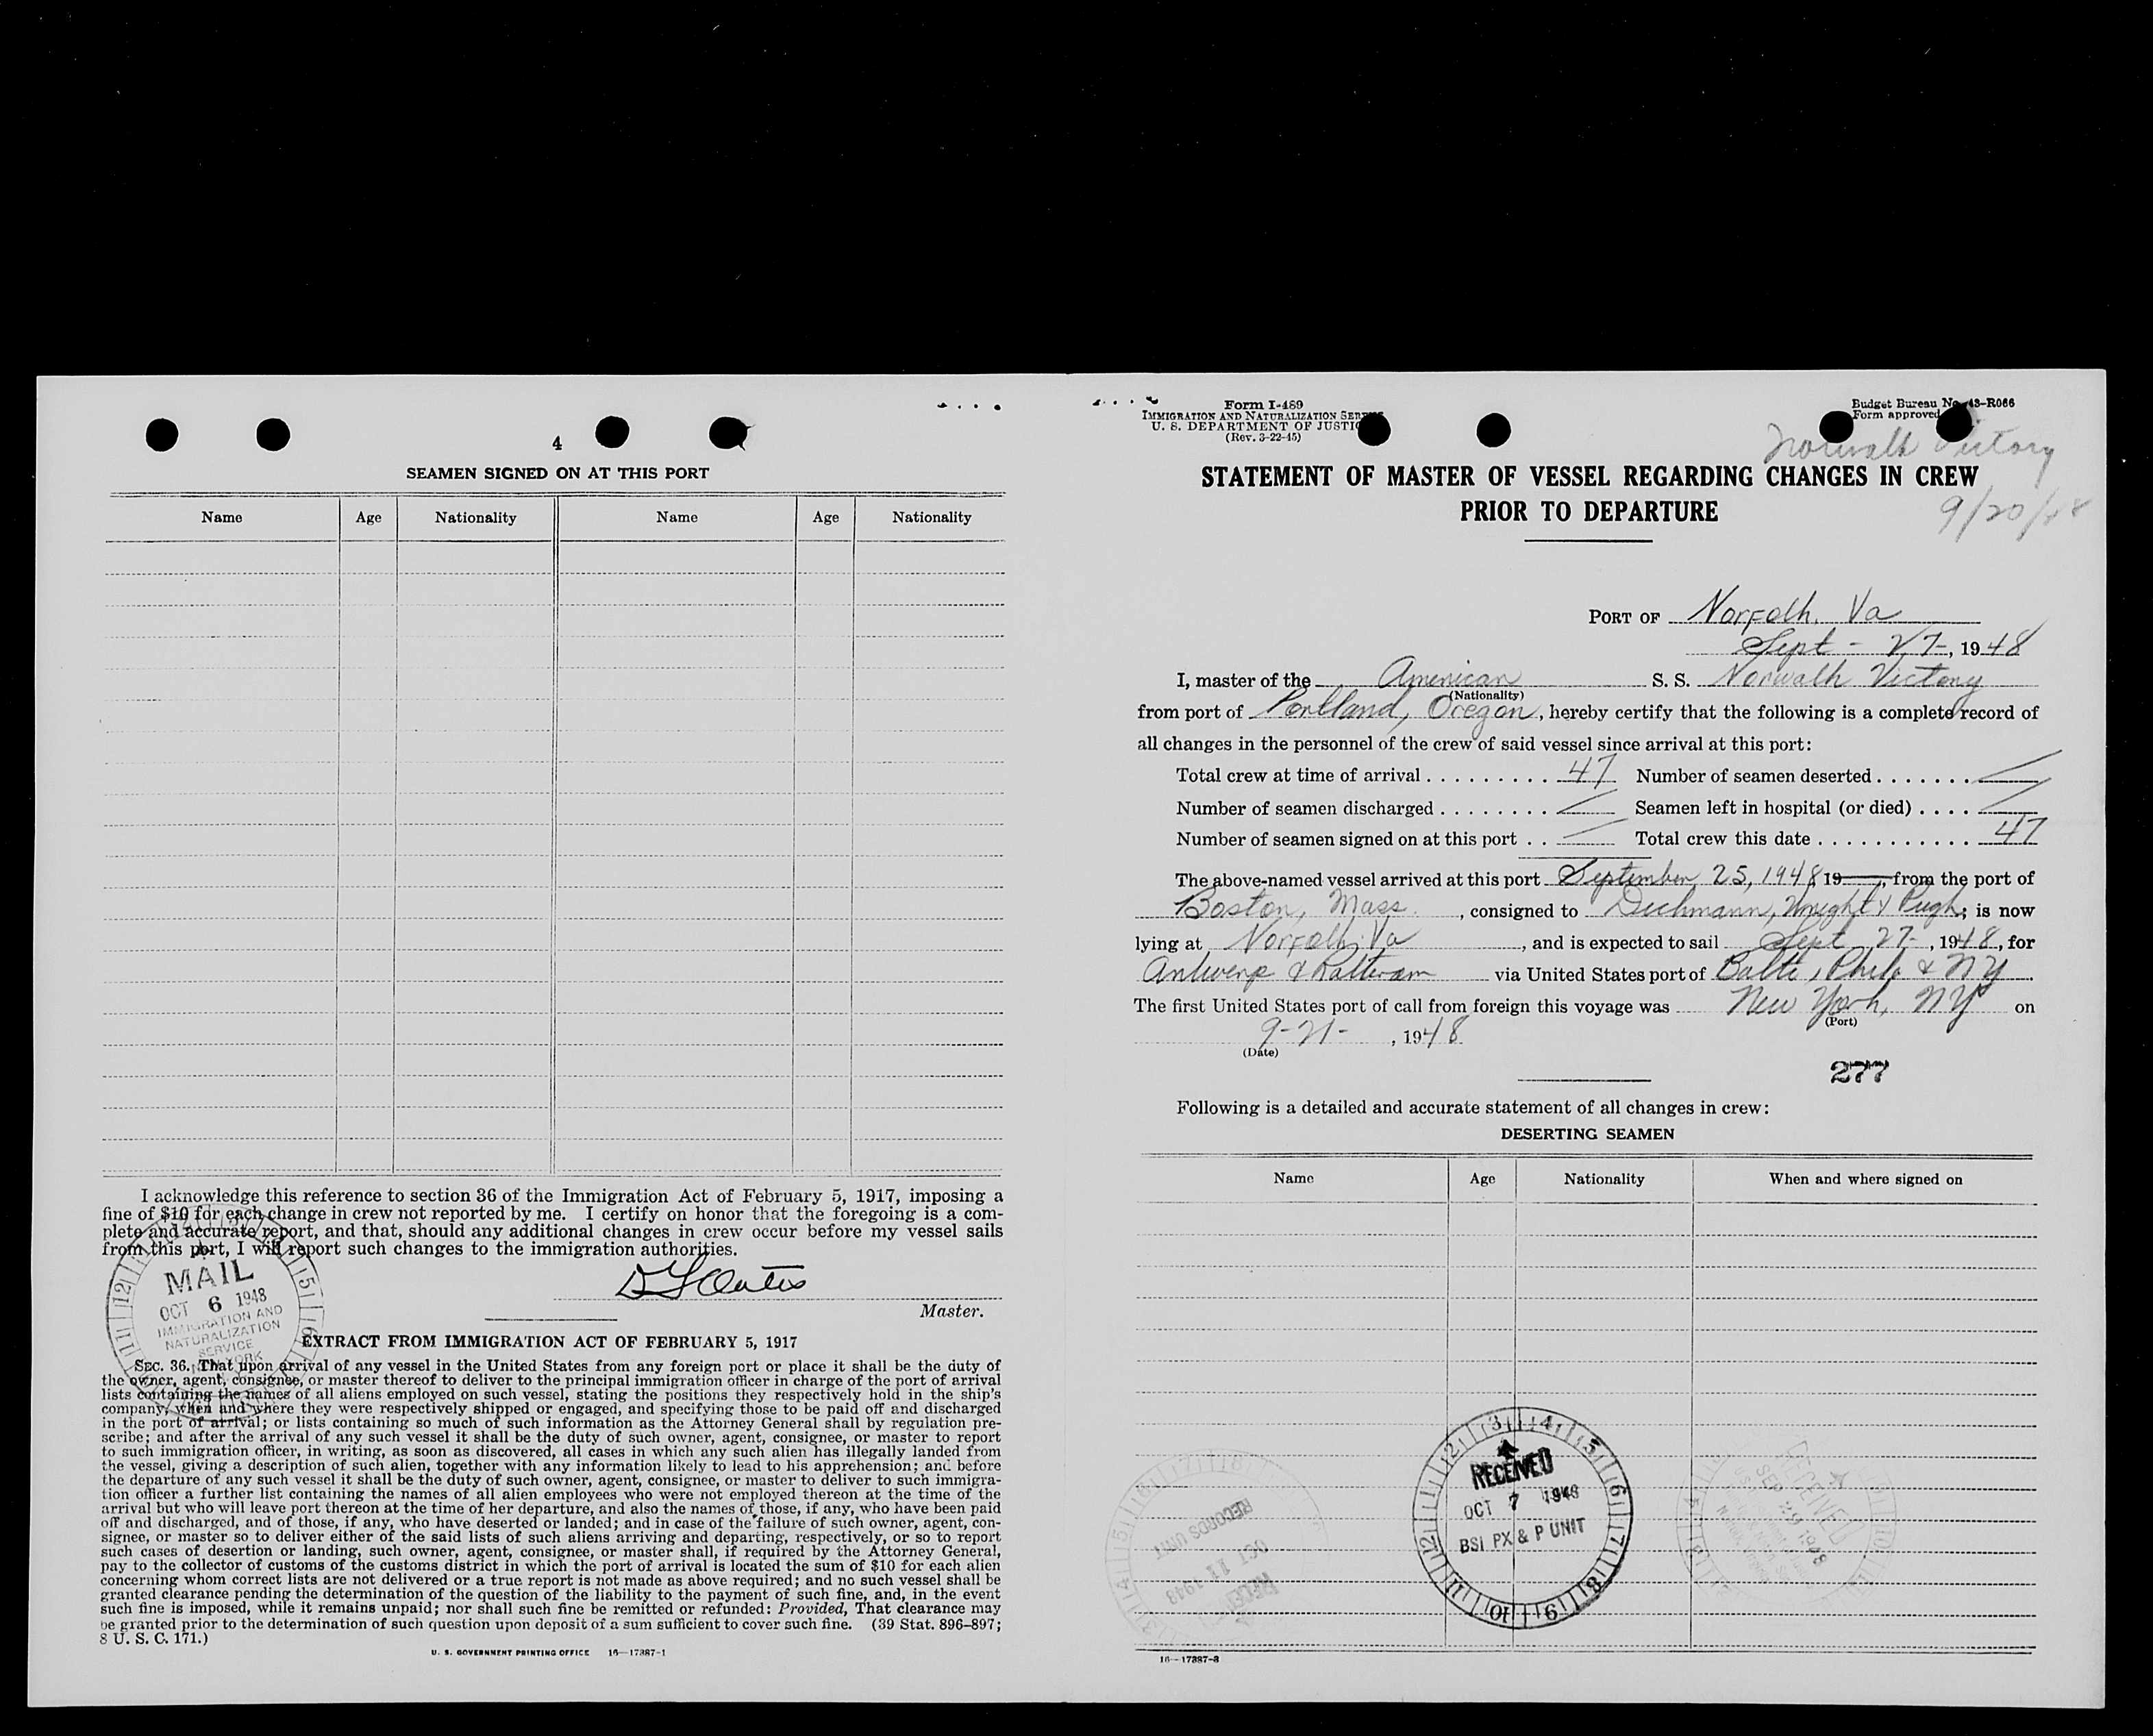 4
SEAMEN SIGNED ON AT THIS PORT
Name Age Nationality Name Age Nationality
I acknowledge this reference to section 36 of the Immigration Act of February 5, 1917, imposing a
fine of $10 for each change in crew not reported by me. I certify on honor that the foregoing is a com-
plete and accurate report, and that, should any additional changes in crew occur before my vessel sails
from this port, I will report such changes to the immigration authorities.
Master.
MAIL
OCT 6 1948
IMMIGRATION AND
NATURALIZATION
SERVICE
EXTRACT FROM IMMIGRATION ACT OF FEBRUARY 5, 1917
SEC. 36. That upon arrival of any vessel in the United States from any foreign port or place it shall be the duty of
the owner, agent, consignee, or master thereof to deliver to the principal immigration officer in charge of the port of arrival
lists containing the names of all aliens employed on such vessel, stating the positions they respectively hold in the ship's
company, when and where they were respectively shipped or engaged, and specifying those to be paid off and discharged
in the port of arrival; or lists containing so much of such information as the Attorney General shall by regulation pre-
scribe; and after the arrival of any such vessel it shall be the duty of such owner, agent, consignee, or master to report
to such immigration officer, in writing, as soon as discovered, all cases in which any such alien has illegally landed from
the vessel, giving a description of such alien, together with any information likely to lead to his apprehension; and before
the departure of any such vessel it shall be the duty of such owner, agent, consignee, or master to deliver to such immigra-
tion officer a further list containing the names of all alien employees who were not employed thereon at the time of the
arrival but who will leave port thereon at the time of her departure, and also the names of those, if any, who have been paid
off and discharged, and of those, if any, who have deserted or landed; and in case of the failure of such owner, agent, con-
signee, or master so to deliver either of the said lists of such aliens arriving and departing, respectively, or so to report
such cases of desertion or landing, such owner, agent, consignee, or master shall, if required by the Attorney General,
pay to the collector of customs of the customs district in which the port of arrival is located the sum of $10 for each alien
concerning whom correct lists are not delivered or a true report is not made as above required; and no such vessel shall be
granted clearance pending the determination of the question of the liability to the payment of such fine, and, in the event
such fine is imposed, while it remains unpaid; nor shall such fine be remitted or refunded: Provided, That clearance may
be granted prior to the determination of such question upon deposit of a sum sufficient to cover such fine. (39 Stat. 896-897;
8 U. S. C. 171.)
U. S. GOVERNMENT PRINTING OFFICE 16—17387-1
Form I-489
IMMIGRATION AND NATURALIZATION
U. S. DEPARTMENT OF
(Rev. 3-22-45)
Budget Bureau No. 43-R066
Form approved
Norwalk Victory
9/20/48
STATEMENT OF MASTER OF VESSEL REGARDING CHANGES IN CREW
PRIOR TO DEPARTURE
PORT OF Norfolk, Va
Sept - 27-, 1948
I, master of the American S. S. Norwalk Victory
(Nationality)
from port of Portland, Oregon, hereby certify that the following is a complete record of
all changes in the personnel of the crew of said vessel since arrival at this port:
Total crew at time of arrival 47 Number of seamen deserted
Number of seamen discharged Seamen left in hospital (or died)
Number of seamen signed on at this port Total crew this date 47
The above-named vessel arrived at this port September 25, 1948 19 , from the port of
Boston, Mass. , consigned to Dichmann, Wright & Pugh; is now
lying at Norfolk, Va , and is expected to sail Sept 27-, 1948, for
Antwerp & via United States port of Balto, Phila & NY.
The first United States port of call from foreign this voyage was New York, NY on
(Port)
9-21- , 1948
(Date)
277
Following is a detailed and accurate statement of all changes in crew:
DESERTING SEAMEN
Name Age Nationality When and where signed on
RECEIVED
OCT 7 1948
BSI PX & P UNIT
RECORDS UNIT
OCT 11 1948
RECEIVED
RECEIVED
SEP 29 1948
16—17387-3